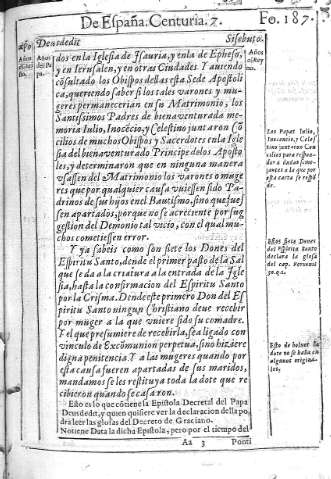 De España. Centuria. 7. Fo. 187.
Año Deusdedit Sisebuto. Años
dos en la Iglesia de Isauria, y en la de Epheso,
y en Ierusalen, y en otras Ciudades. Y auiendo
cõsultado los Obispos dellas esta Sede Apostoli
ca, queriendo saber si los tales varones y mu-
geres permanecerian en su Matrimonio, los
Santissimos Padres de bienauenturada me-
moria Iulio, Inocẽcio, y Celestino juntaron Cõ
cilios de muchos Obispos y Sacerdotes en la Igle
sia del bienauenturado Principe de los Aposto
les, y determinaron que en ninguna manera
vsassen del Matrimonio los varones o muge
res que por qualquier causa vuiessen sido Pa-
drinos de sus hijos en el Bautismo, sino que fues
sen apartados, porque no se acreciente por sug
gestion del Demonio tal vicio, con el qual mu-
chos cometiessen error.
Y ya sabeis como son siete los Dones del
Espiritu Santo, desde el primer pasto de la Sal
que se da a la criatura a la entrada de la Igle
sia, hasta la confirmacion del Espiritu Santo
por la Crisma. Dende este primero Don del Es
piritu Santo ningun Christiano deue recebir
por muger a la que vuiere sido su comadre.
Y el que presumiere de recebirla, sea ligado con
vinculo de Excõmunion perpetua, sino hiziere
digna penitencia. Y a las mugeres quando por
esta causa fueren apartadas de sus maridos,
mandamos se les restituya toda la dote que re
cibieron quando se casaron.
Esto es lo que cõtiene la Epistola Decretal del Papa
Deusdedit, y quien quisiere ver la declaracion della po-
dra leer las glosas del Decreto de Graciano.
No tiene Data la dicha Epistola, pero por el tiempo del
Aa 3 Ponti
Los Papas Iulio,
Inocencio, y Celes
tino juntaron Con
cilios para
esta carta se
Estos siete Dones
del espiritu santo
declara la glosa
del cap.
30. q. 1.
Esto de boluer la
dote no se halla en
algunos origina-
les.